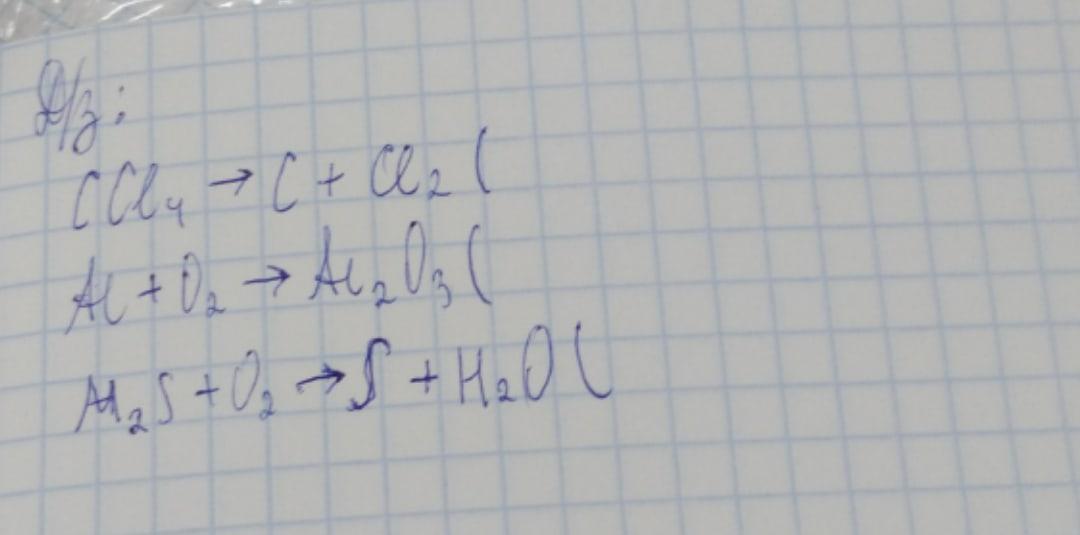 Д/з:
CCl₄ → C + Cl₂ (
Al + O₂ → Al₂O₃ (
H₂S + O₂ → S + H₂O (